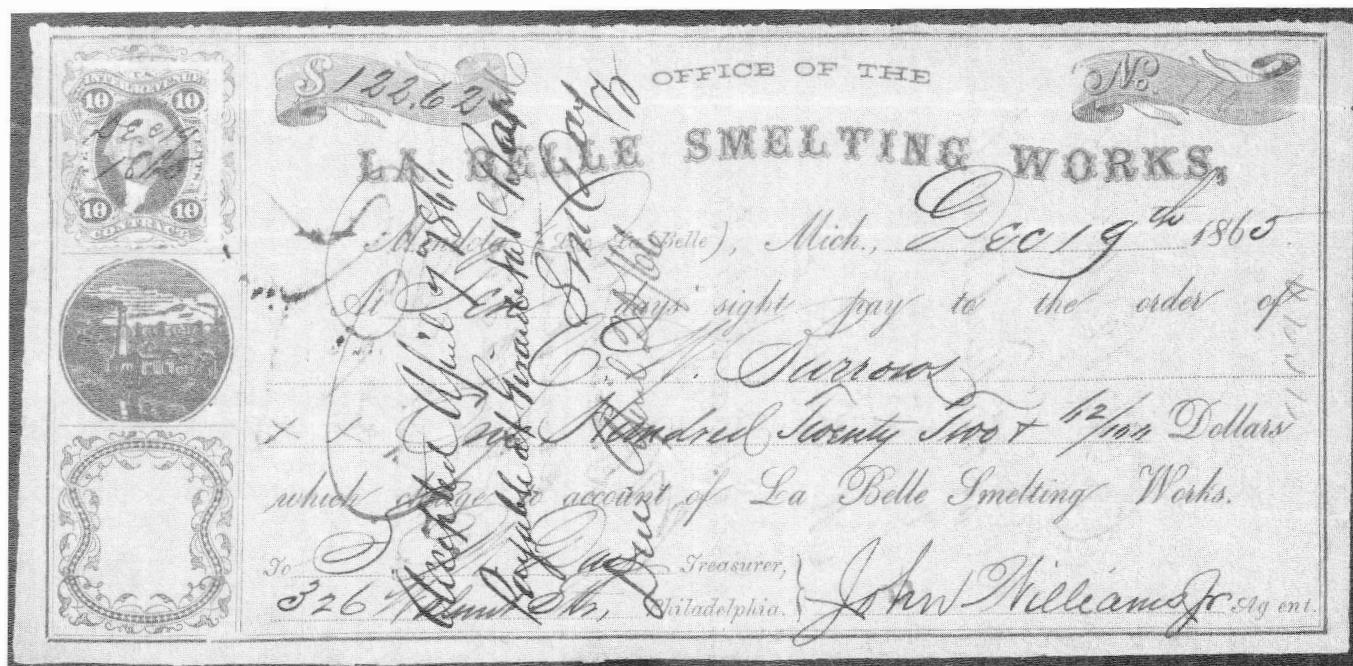 U.S. INTER. REVENUE
10 10
Dec 19
1865
10 10
$ 122.62
OFFICE OF THE
No.
LA BELLE SMELTING WORKS,
Mendota (Lac La Belle), Mich., Dec 19th 1865.
At Ten days' sight pay to the order of
C. W. Burrows
X X One Hundred Twenty Two & 62/100 Dollars
which charge to account of La Belle Smelting Works.
To Day Treasurer,
326 Walnut Str, Philadelphia.
John Williams Jr Agent.
Accepted April 7 1866
Payable at Girard Nat Bank
Day
Due April